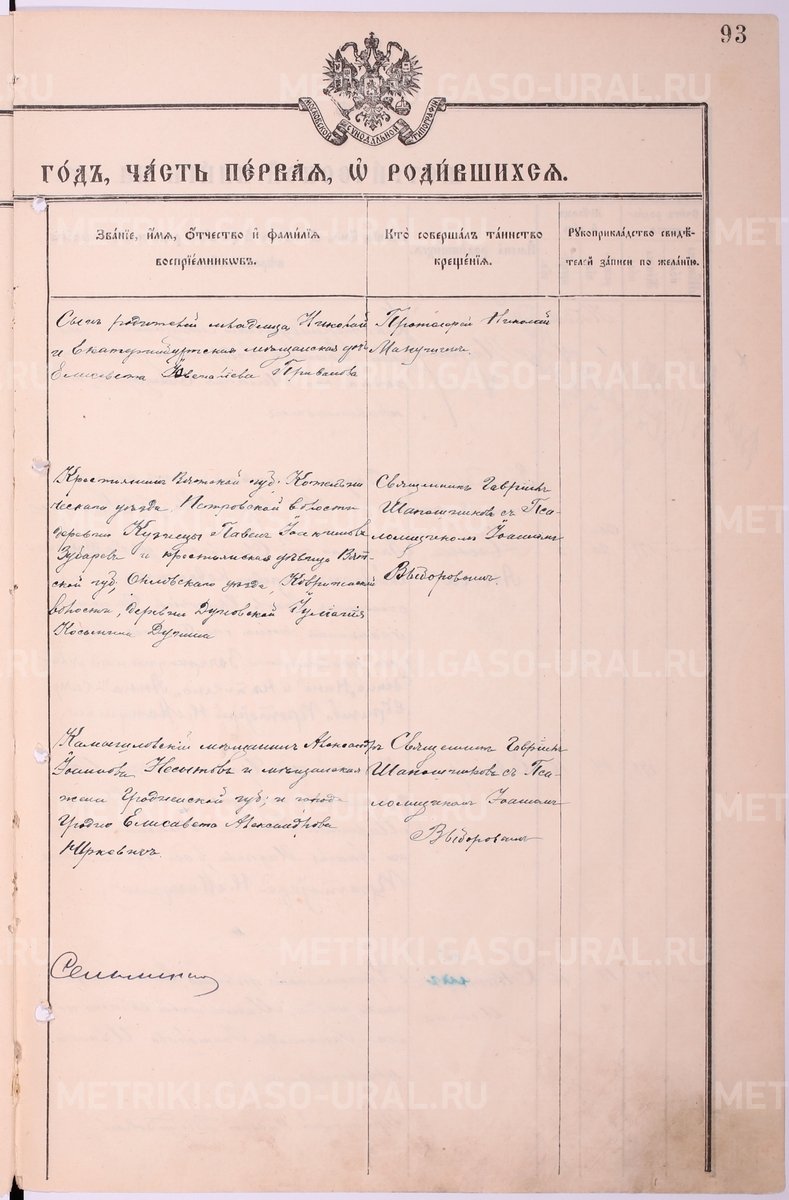 93
МОСКОВСКОЙ СѴНОДАЛЬНОЙ ТИПОГРАФІИ
ГО́ДЪ, ЧА́СТЬ ПЕ́РВАЯ, Ѽ РОДИ́ВШИХСЯ.
ЗВА́НІЕ, И́МЯ, О́ТЧЕСТВО И҆ ФАМИ́ЛІЯ
ВОСПРІЕ́МНИКѠВЪ.
КТО̀ СОВЕРША́ЛЪ ТА́ИНСТВО
КРЕЩЕ́НІЯ.
РУКОПРИКЛА́ДСТВО СВИДѢ́-
ТЕЛЕЙ ЗА́ПИСИ ПО ЖЕЛА́НІЮ.
Сынъ родителей младенца Николай
и Екатеринбургская мѣщанская
Елисавета Приванова
Протоіерей Николай
Крестьянинъ Вятской губ. Котельни
ческаго уѣзда, Петровской волости
деревни Кузнецы Павелъ Іоакимовъ
Зубаревъ и крестьянская дѣвица Вят-
ской губ, Орловскаго уѣзда,
волости, деревни Іуліанія
Косьмина
Священникъ Гавріилъ
Шапошниковъ съ Пса-
ломщикомъ Іоанномъ
Выборовымъ.
Камышловскій мѣщанинъ Александръ
Іоанновъ Несытовъ и мѣщанская
жена Гродненской губ; и города
Гродно Елисавета Александрова
Юркевичъ.
Священникъ Гавріилъ
Шапошниковъ съ Пса-
ломщикомъ Іоанномъ
Выборовымъ
METRIKI.GASO-URAL.RU